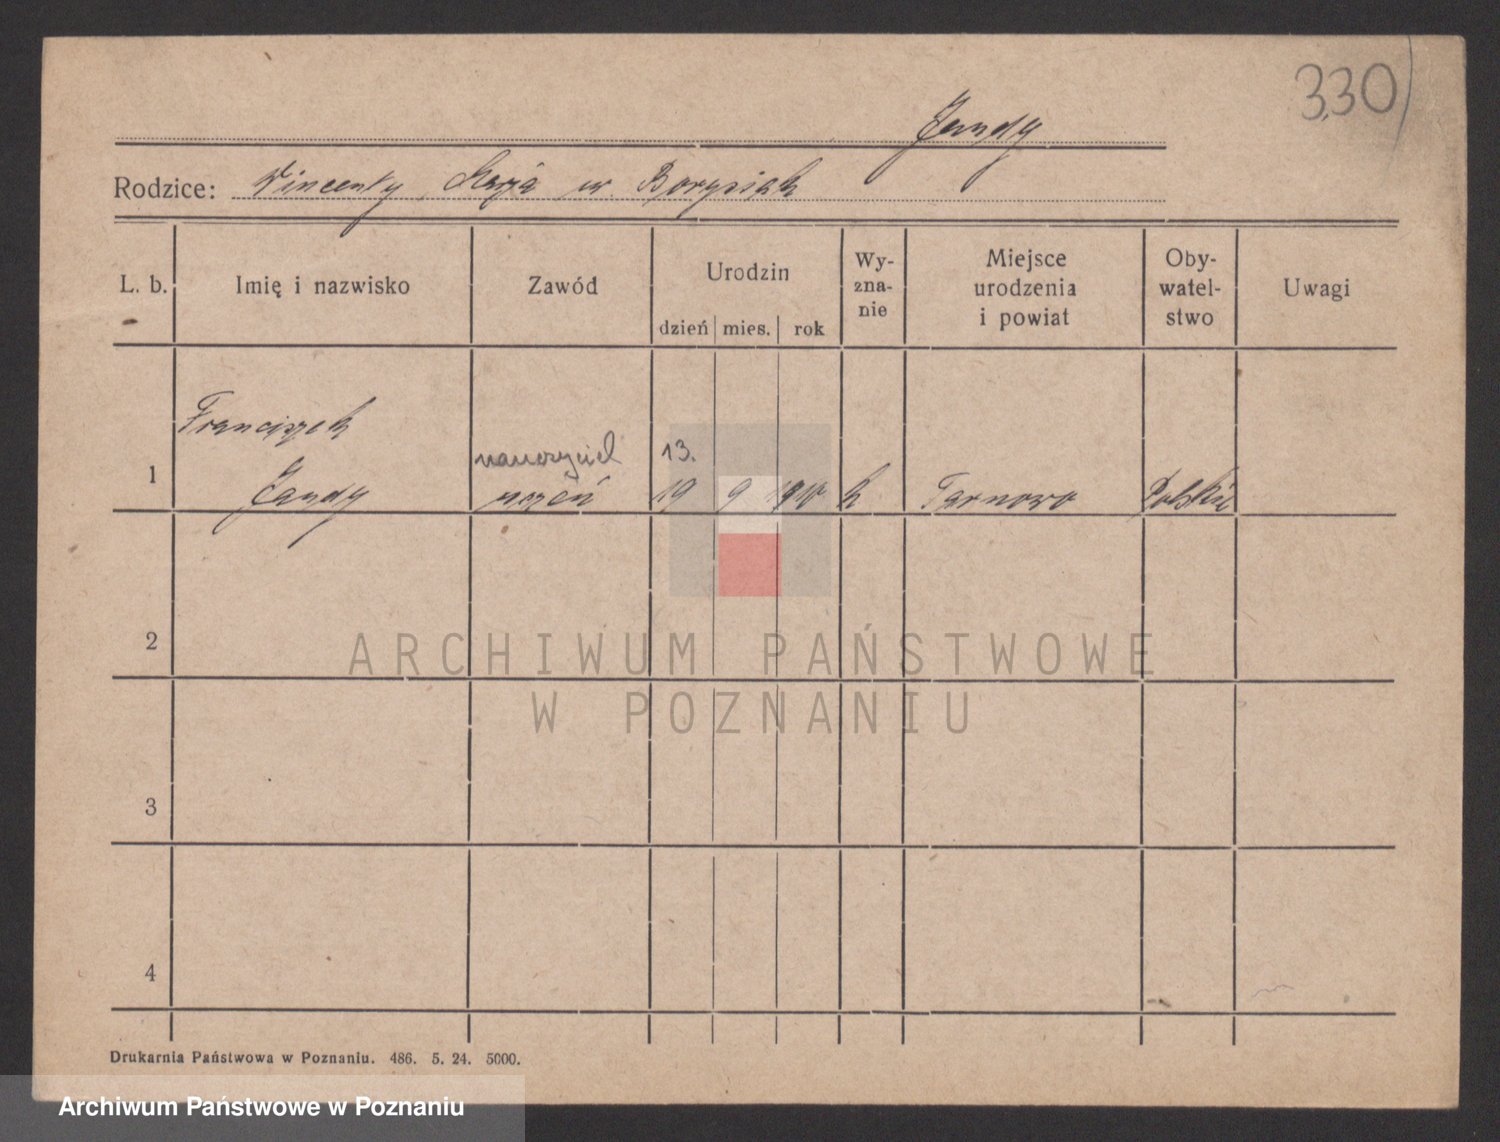 330
Jandy
Rodzice: Wincenty Marja ur. Borysiak
L. b. Imię i nazwisko Zawód Urodzin dzień mies. rok Wy-zna-nie Miejsce urodzenia i powiat Oby-watel-stwo Uwagi
Franciszek
nauczyciel 13.
1 Jandy uczeń 19 9 1910 k Tarnowo Polskie
2
ARCHIWUM PAŃSTWOWE
W POZNANIU
3
4
Drukarnia Państwowa w Poznaniu. 486. 5. 24. 5000.
Archiwum Państwowe w Poznaniu